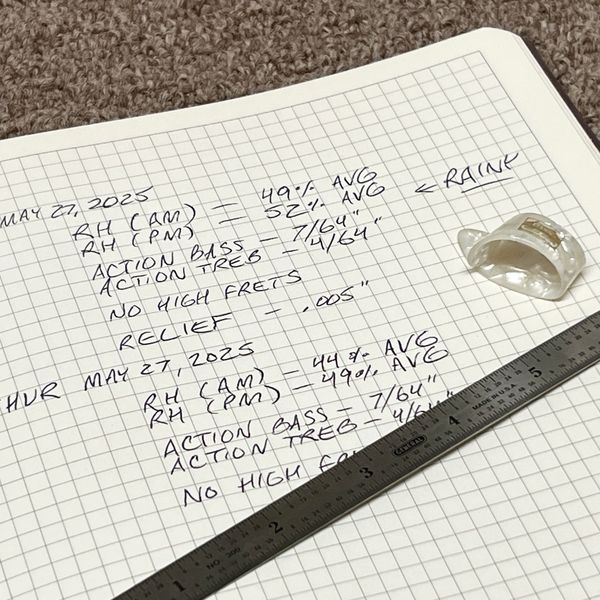 MAY 27, 2025
RH (AM) = 49% AVG
RH (PM) = 52% AVG
← RAINY
ACTION BASS - 7/64"
ACTION TREB - 4/64"
NO HIGH FRETS
RELIEF - .005"
HUR MAY 27, 2025
RH (AM) - 44% AVG
RH (PM) - 49% AVG
ACTION BASS - 7/64"
ACTION TREB - 4/64"
NO HIGH
1 2 3 4 5
NO. 300
GENERAL
MADE IN U.S.A.